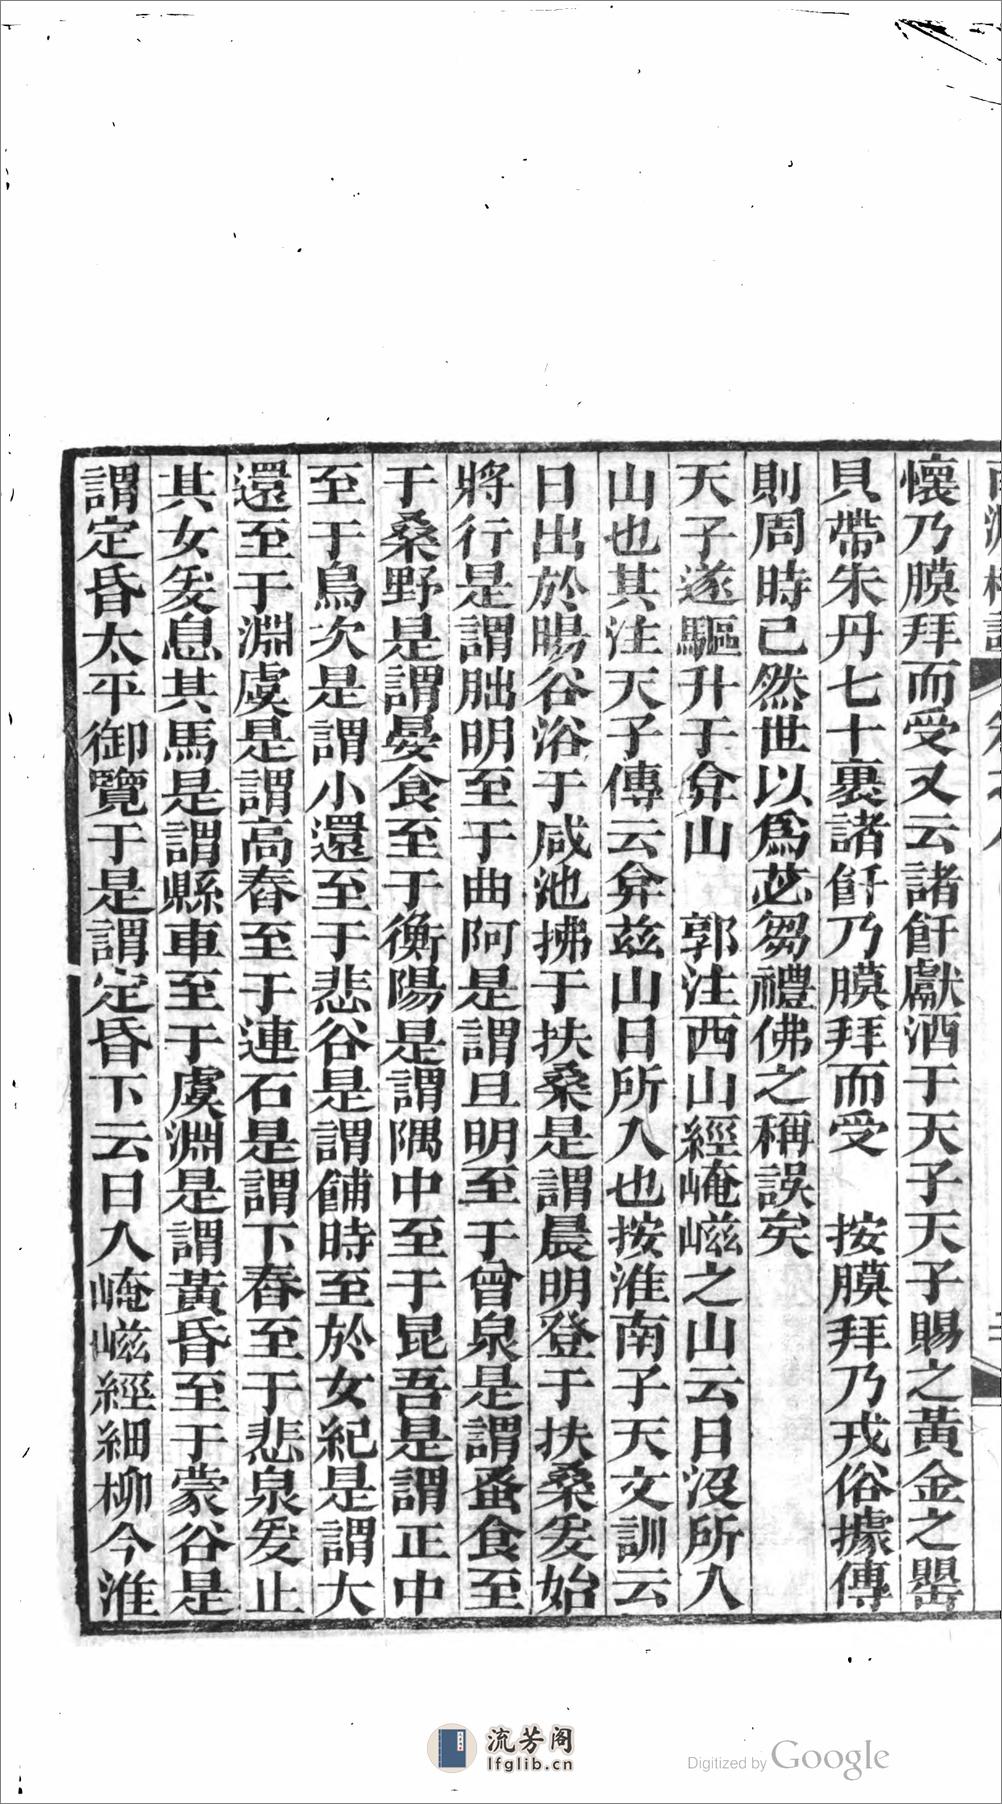 懷乃膜拜而受又云諸飦獻酒于天子天子賜之黃金之罌
貝帶朱丹七十裹諸飦乃膜拜而受　按膜拜乃戎俗據傳
則周時已然世以爲苾芻禮佛之稱誤矣
天子遂驅升于弇山　郭注西山經崦嵫之山云日沒所入
山也其注天子傳云弇茲山日所入也按淮南子天文訓云
日出於暘谷浴于咸池拂于扶桑是謂晨明登于扶桑爰始
將行是謂朏明至于曲阿是謂旦明至于曾泉是謂蚤食至
于桑野是謂晏食至于衡陽是謂隅中至于昆吾是謂正中
至于鳥次是謂小還至于悲谷是謂餔時至於女紀是謂大
還至于淵虞是謂高舂至于連石是謂下舂至于悲泉爰止
其女爰息其馬是謂縣車至于虞淵是謂黃昏至于蒙谷是
謂定昏太平御覽于是謂定昏下云日入崦嵫經細柳今淮
流芳阁
lfglib.cn
Digitized by Google